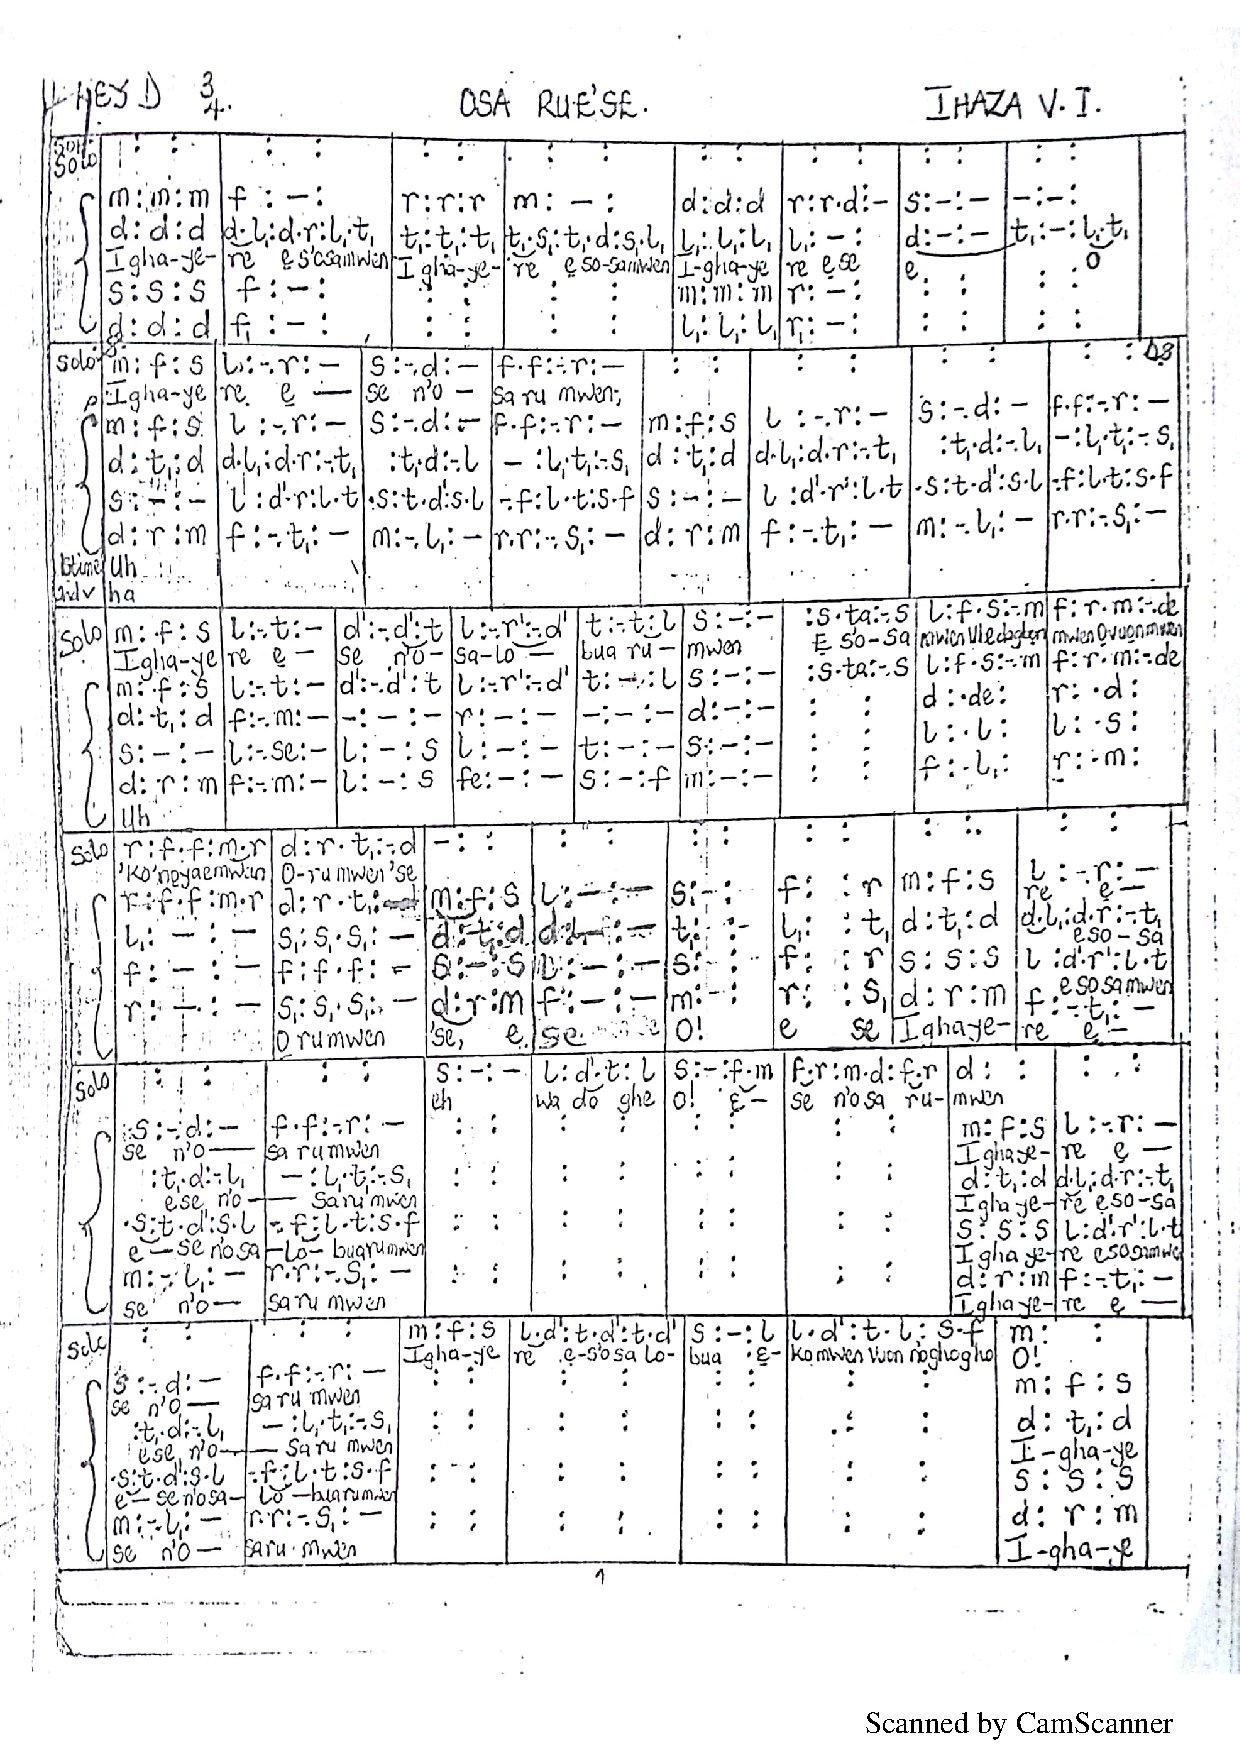 KEY D 3/4. OSA RUE'SE. IHAZA V. I.
Solo : : : : : : : : : : : : : : : :
m : m : m f : – : r : r : r m : – : d : d : d r : r . d : – s : – : – – : – : –
d : d : d d . l₁ : d . r : l₁ . t₁ t₁ : t₁ : t₁ t₁ . s₁ : t₁ . d : s₁ . l₁ l₁ : l₁ : l₁ l₁ : – : d : – : – t₁ : – : l₁ . t₁
Igha-ye- re ẹs'osamwen Igha-ye- re ẹso-samwen I-gha-ye re ẹse e O
s : s : s f : – : : : : : m : m : m r : – : : : : :
d : d : d f₁ : – : : : : : l₁ : l₁ : l₁ r₁ : – : : : : :
Solo m : f : s l : - . r : – s : - . d : – f . f : - . r : – : : : : : : : : DS
Igha-ye re ẹ — se n'o – sa ru mwen;
p m : f : s l : - . r : – s : - . d : – f . f : - . r : – m : f : s l : - . r : – s : - . d : – f . f : - . r : –
d : t₁ : d d . l₁ : d . r : - . t₁ : t₁ . d : - . l – : l₁ . t₁ : - . s₁ d : t₁ : d d . l₁ : d . r : - . t₁ : t₁ . d : - . l₁ – : l₁ . t₁ : - . s₁
s : – : – l : d' . r : l . t . s : t . d' : s . l - . f : l . t : s . f s : – : – l : d' . r' : l . t . s : t . d' : s . l - . f : l . t : s . f
d : r : m f : - . t₁ : – m : - . l₁ : – r . r : - . s₁ : – d : r : m f : - . t₁ : – m : - . l₁ : – r . r : - . s₁ : –
Uh
ha
Solo m : f : s l : - . t : – d' : - . d' : t l : - . r' : - . d' t : - . t : l s : – : – : s . ta : - . s l : f . s : - . m f : r . m : - . de
Igha-ye re ẹ – se n'o- sa-lo — bua ru – mwen Ẹ so-sa
m : f : s l : - . t : – d' : - . d' : t l : - . r' : - . d' t : – : l s : – : – : s . ta : - . s l : f . s : - . m f : r . m : - . de
d : t₁ : d f : - . m : – – : – : – r : – : – – : – : – d : – : – : : d : . de : r : . d :
s : – : – l : - . se : – l : – : s l : – : – t : – : – s : – : – : : l : . l : l : . s :
d : r : m f : - . m : – l : – : s fe : – : – s : – : f m : – : – : : f : . l₁ : r : . m :
Uh
Solo r : f . f : m . r d : r . t₁ : - . d – : : : : : : : : : : : : : :
O-rumwen'se
r : f . f : m . r d : r . t₁ : m : f : s l : – : – s : – : f : : r m : f : s l : - . r : –
re ẹ —
l₁ : – : – s₁ : s₁ . s₁ : – d : t₁ : d d : l₁ : – t₁ : – : l₁ : : t₁ d : t₁ : d d . l₁ : d . r : - . t₁
ẹso-sa
f : – : – f : f . f : – s : – : s l : – : – s : – : f : : r s : s : s l : d' . r' : l . t
ẹsosamwen
r : – : – s₁ : s₁ . s₁ : – d : r : m f : – : – m : – : r : : s₁ d : r : m f : - . t₁ : –
O rumwen 'se, ẹ se O! e se Igha-ye- re ẹ –
Solo : : : : s : – : – l : d' . t : l s : – : f . m f . r : m . d : f . r d : : : :
eh wa do ghe O! Ẹ – se n'osa ru- mwen
s : - . d : – f . f : - . r : – : : : : : : : : m : f : s l : - . r : –
se n'o — sa rumwen Igha-ye- re ẹ —
: t₁ . d : - . l₁ – : l₁ . t₁ : - . s₁ : : : : : : : : d : t₁ : d d . l₁ : d . r : - . t₁
ẹse, n'o — sa ru mwen Igha-ye- re ẹso-sa
. s : t . d' : s . l - . f : l . t : s . f : : : : : : : : s : s : s l : d' . r' : l . t
ẹ – se n'osa – lo – buarumwen Igha ye- re ẹsosamwe
m : - . l₁ : – r . r : - . s₁ : – : : : : : : : : d : r : m f : - . t₁ : –
se n'o — sa ru mwen Igha-ye- re ẹ —
Solo : : : : m : f : s l . d' : t . d' : t . d' s : – : l l . d' : t . l : s . f m : :
Igha-ye re ẹ-s'osa lo- bua Ẹ- ko mwen vuen noghogho O!
s : - . d : – f . f : - . r : – : : : : : : : : m : f : s
se n'o — sa ru mwen
: t₁ . d : - . l₁ – : l₁ . t₁ : - . s₁ : : : : : : : : d : t₁ : d
ẹse, n'o — sa ru mwen I-gha-ye
. s : t . d' : s . l - . f : l . t : s . f : : : : : : : : s : s : s
ẹ – se n'osa – lo – buarumwen
m : - . l₁ : – r . r : - . s₁ : – : : : : : : : : d : r : m
se n'o — saru . mwen I-gha-ye
1
Scanned by CamScanner